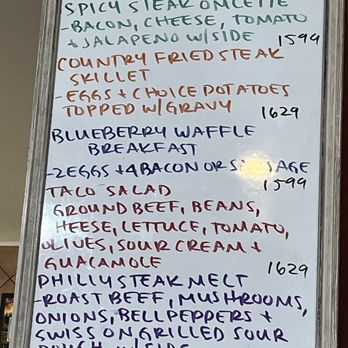 SPICY STEAK OMLETTE
-BACON, CHEESE, TOMATO
+ JALAPENO W/SIDE 1599
COUNTRY FRIED STEAK
SKILLET
-EGGS + CHOICE POTATOES
TOPPED W/GRAVY 1629
BLUEBERRY WAFFLE
BREAKFAST
-2 EGGS + 4 BACON OR S SAGE
1599
TACO SALAD
GROUND BEEF, BEANS,
HEESE, LETTUCE, TOMATO,
OLIVES, SOUR CREAM +
GUACAMOLE 1629
PHILLY STEAK MELT
-ROAST BEEF, MUSHROOMS,
ONIONS, BELLPEPPERS +
SWISS ON GRILLED SOUR
DOUGH W/SIDE